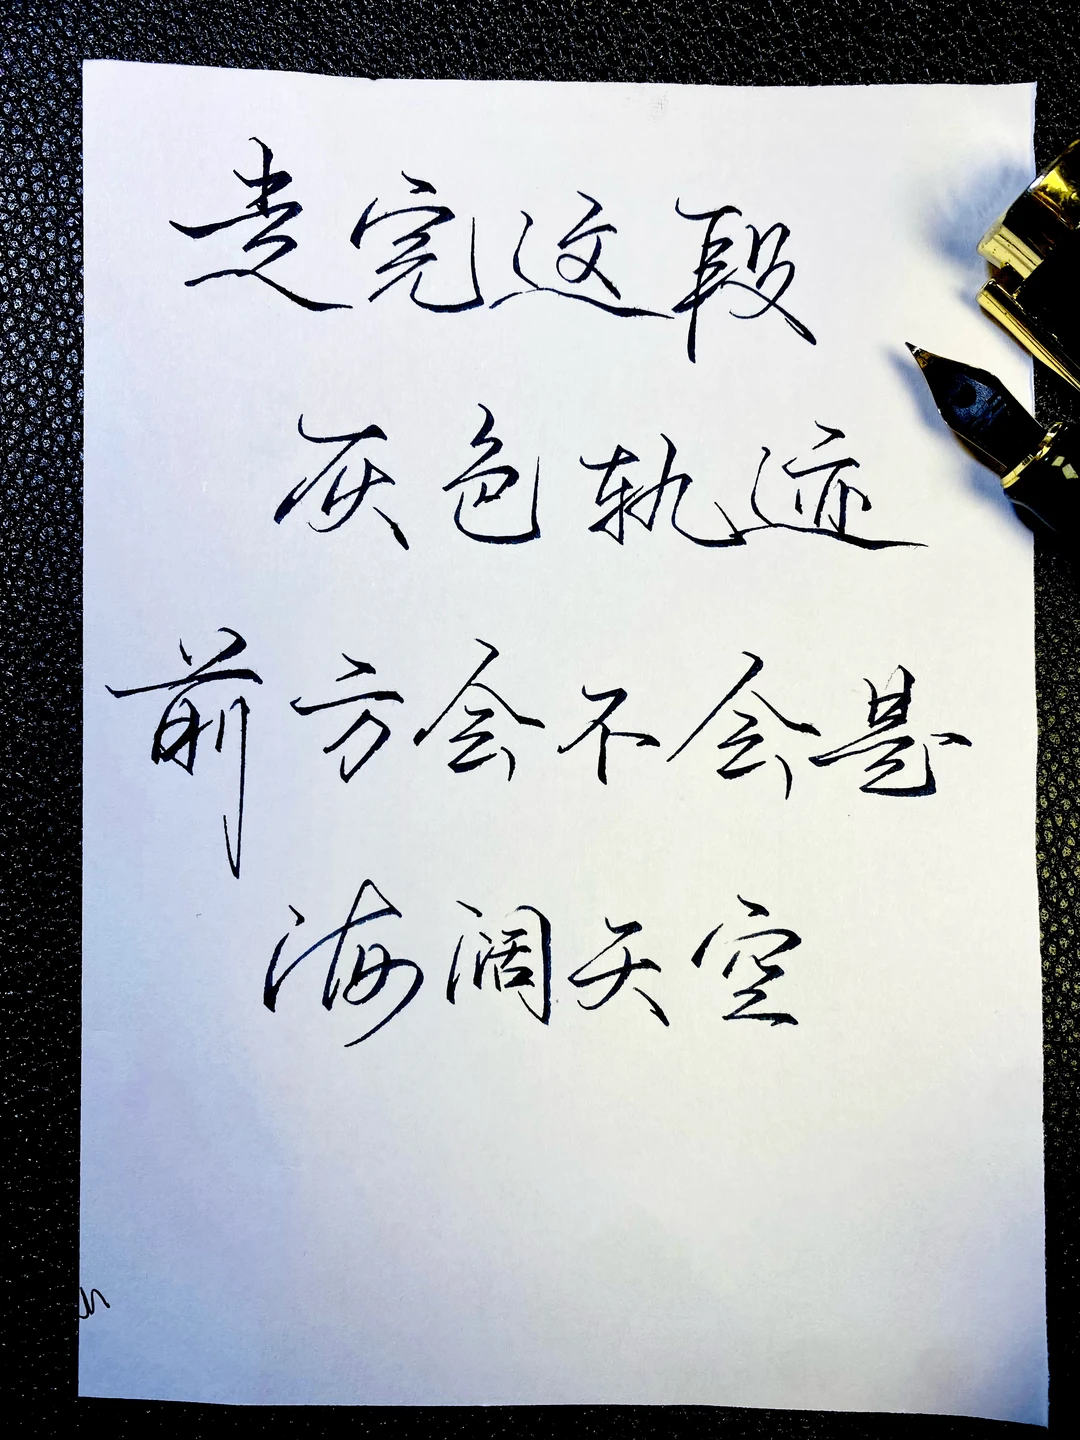 走完这段
灰色轨迹
前方会不会是
海阔天空